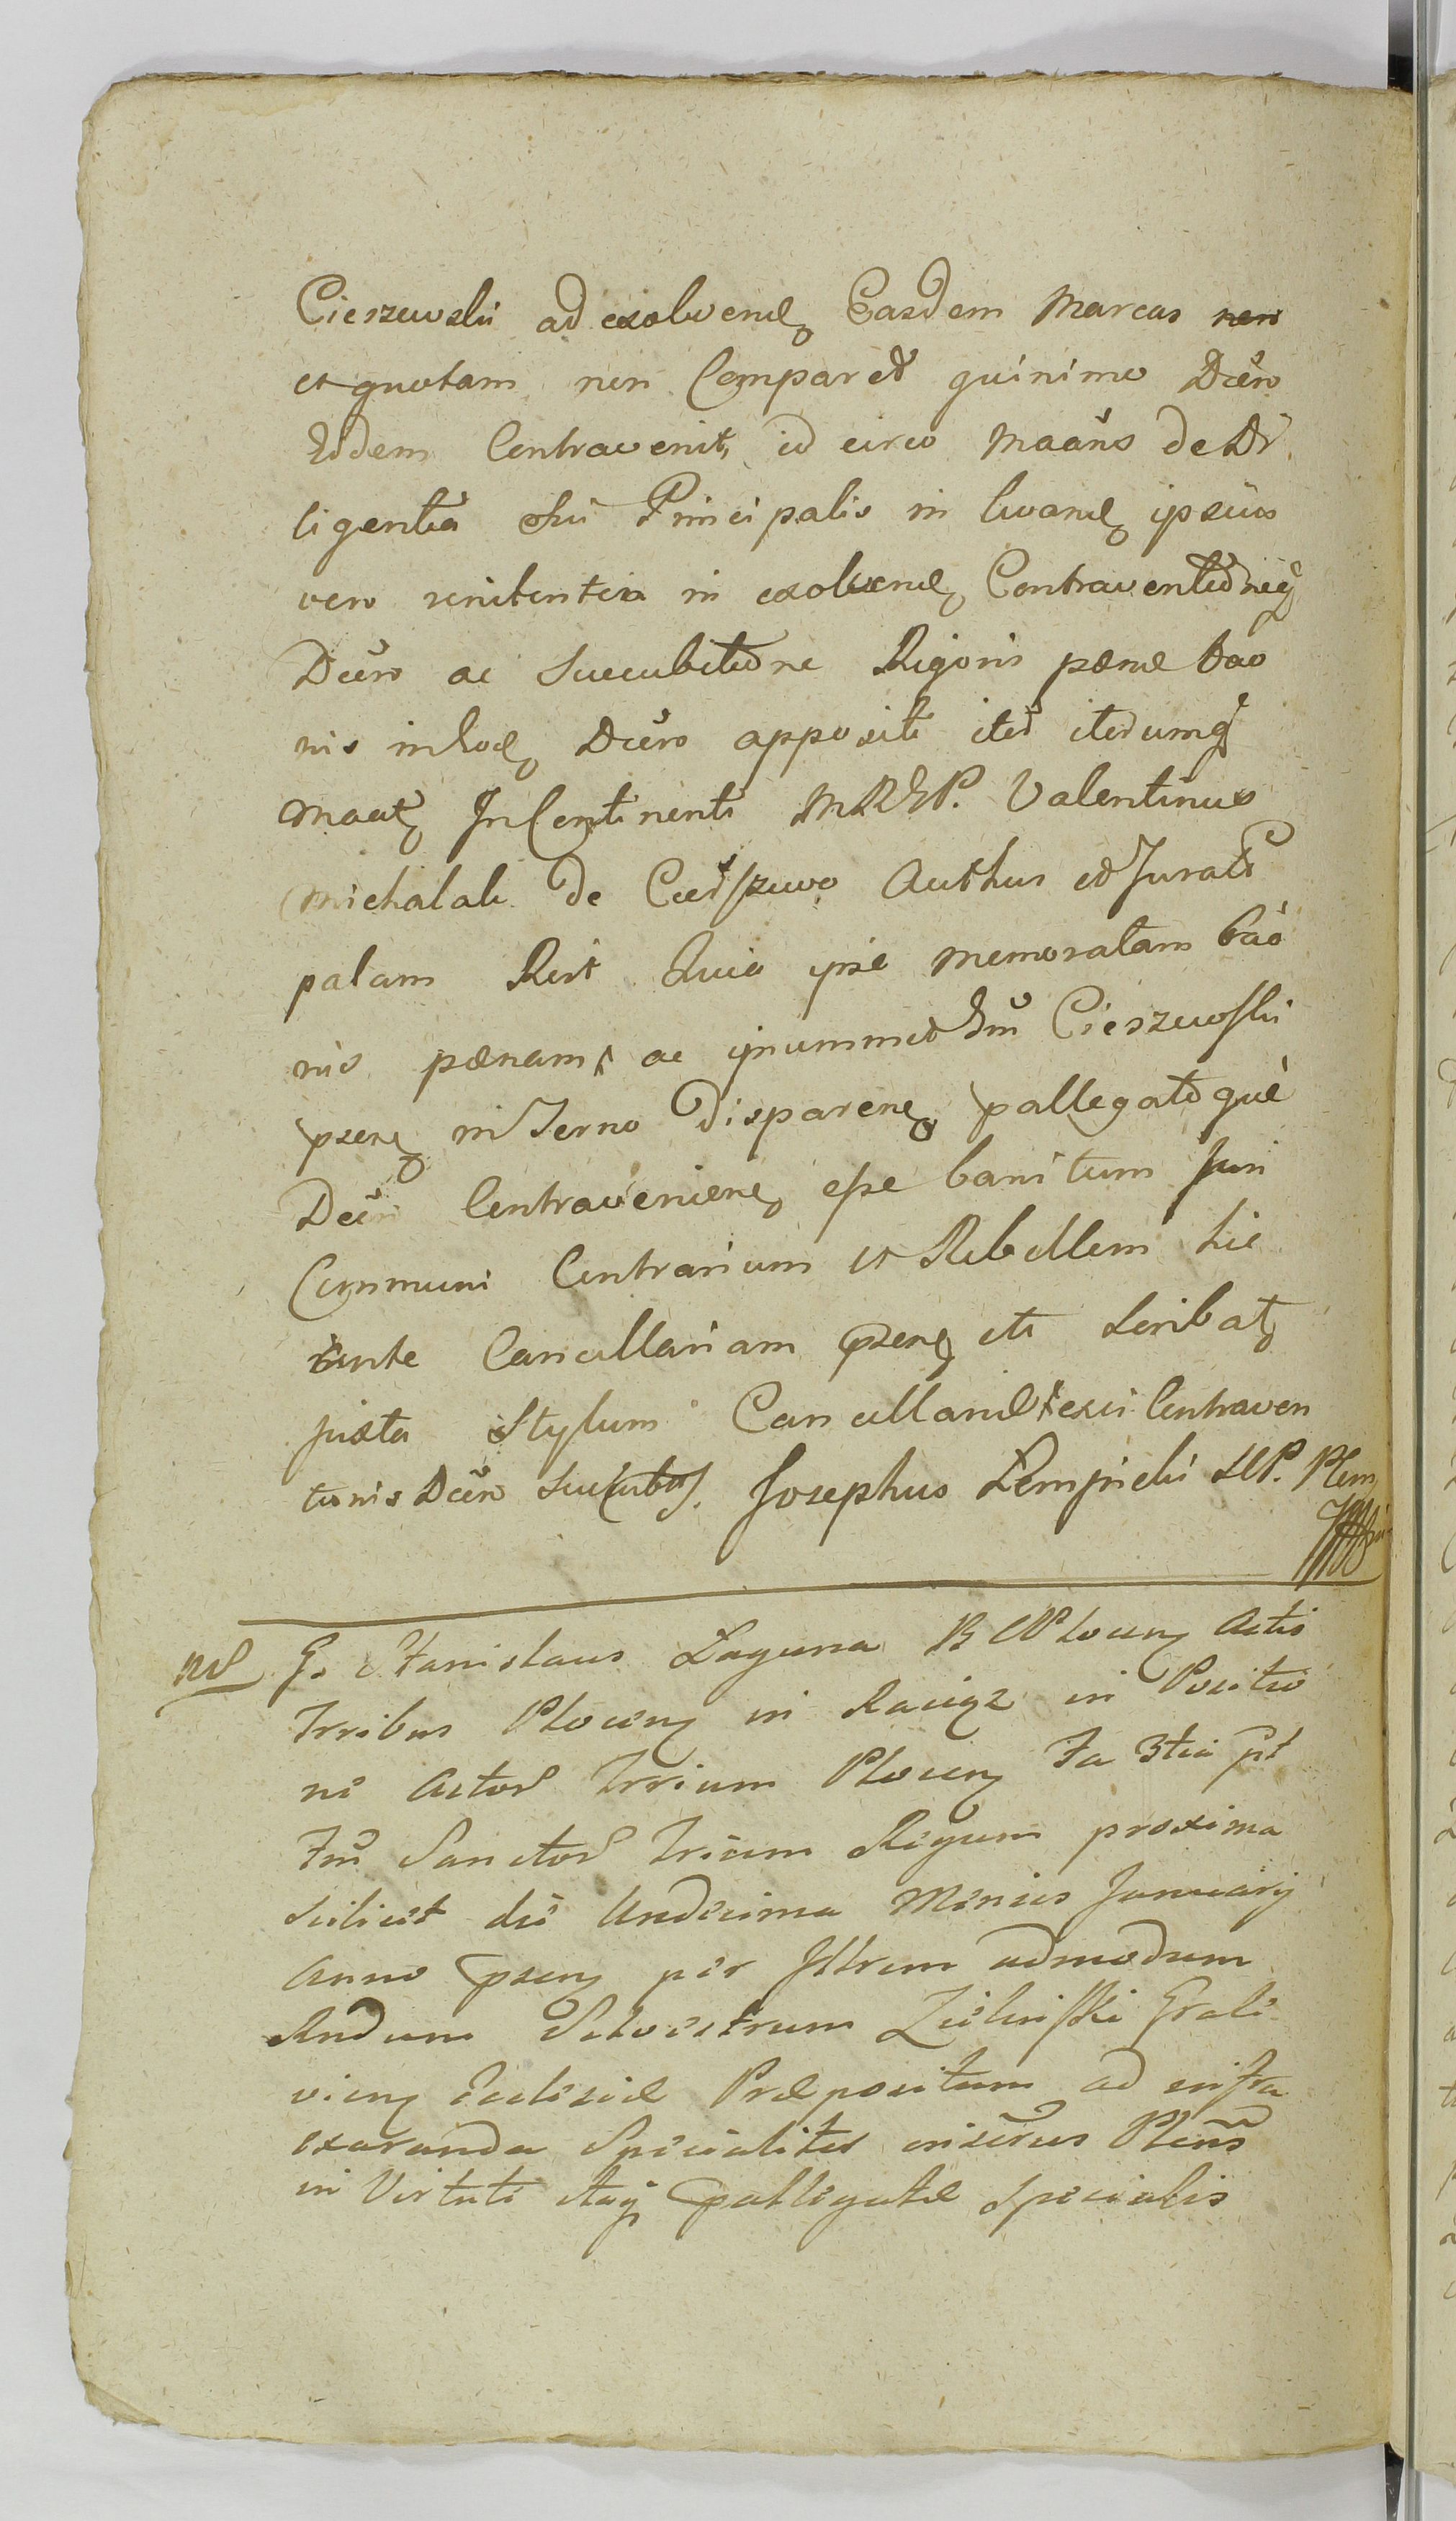 Cieszewski ad exolvend Easdem Marcas non
et quotam non Comparet quinimo Dcro
Eidem Contravenit, id circo Maans de Di
ligentia sui Principalis in lucrand ipsius
vero renitentia in exolvend Contraventioneq
Dcro ac Succubitione Rigoris pænæ bao
nis in hoc Dcro appositi iter iterumq
maat Incontinenti MRGP. Valentinus
Michalak de Cieszewo Authus et Jurats
palam Rect Quia ipse memoratam bao
nis pænam ac ipsummet Gnm Cieszewski
psen in Termo Disparen pallegatoque
Dcro Contravenien esse banitum Juri
Communi Contrarium et Rebellem hic
ante Cancellariam psen etc Scribat
juxta Stylum Cancellariæ exui Contraven
tionis Dcro Succubt. Josephus Łempicki SCP. Plem
nd G. Stanislaus Łaguna B CPlocen Actis
Trribus Plocen in Raciąz in Positio
ne Actor Trrium Plocen Fa 3tia pt
Fm Sanctor Trium Regum proxima
Scilicet die Undecima Mensis January
Anno psen per Illrem admodum
Rndum Silvestrum Zielinski Grali
vicen Ecclesiæ Præpositum ad infra
exaranda Specialiter
in Virtute itaq pallegatæ Specialis